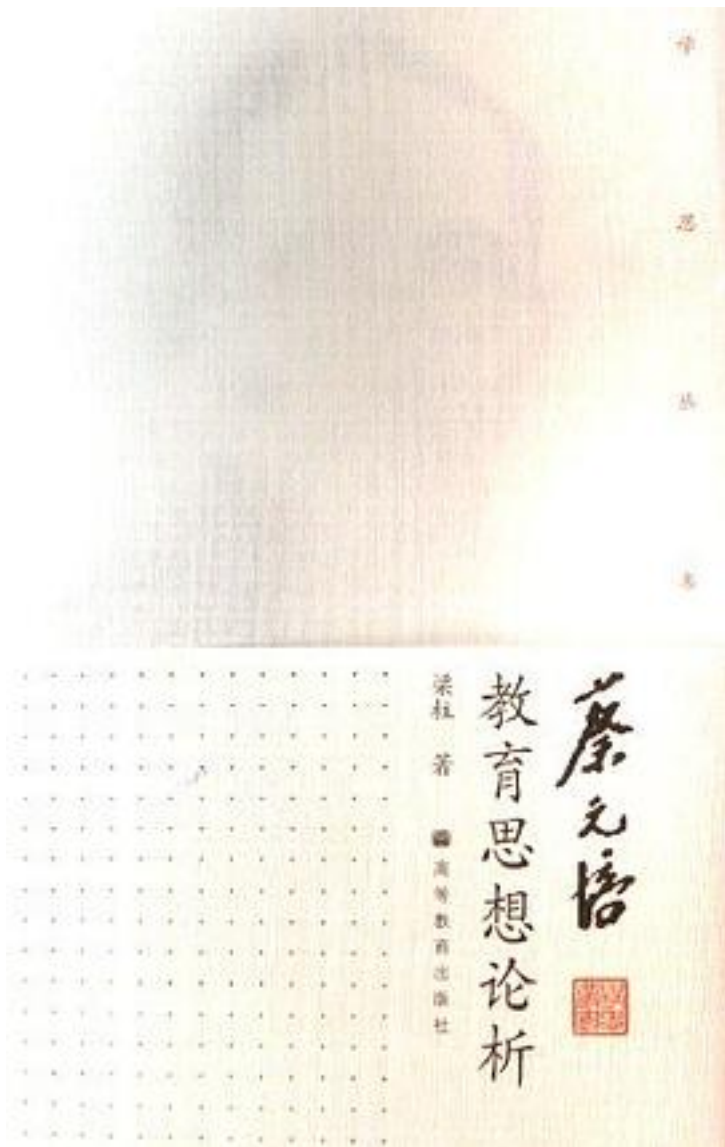 蔡元培
教育思想论析
梁柱 著
高等教育出版社